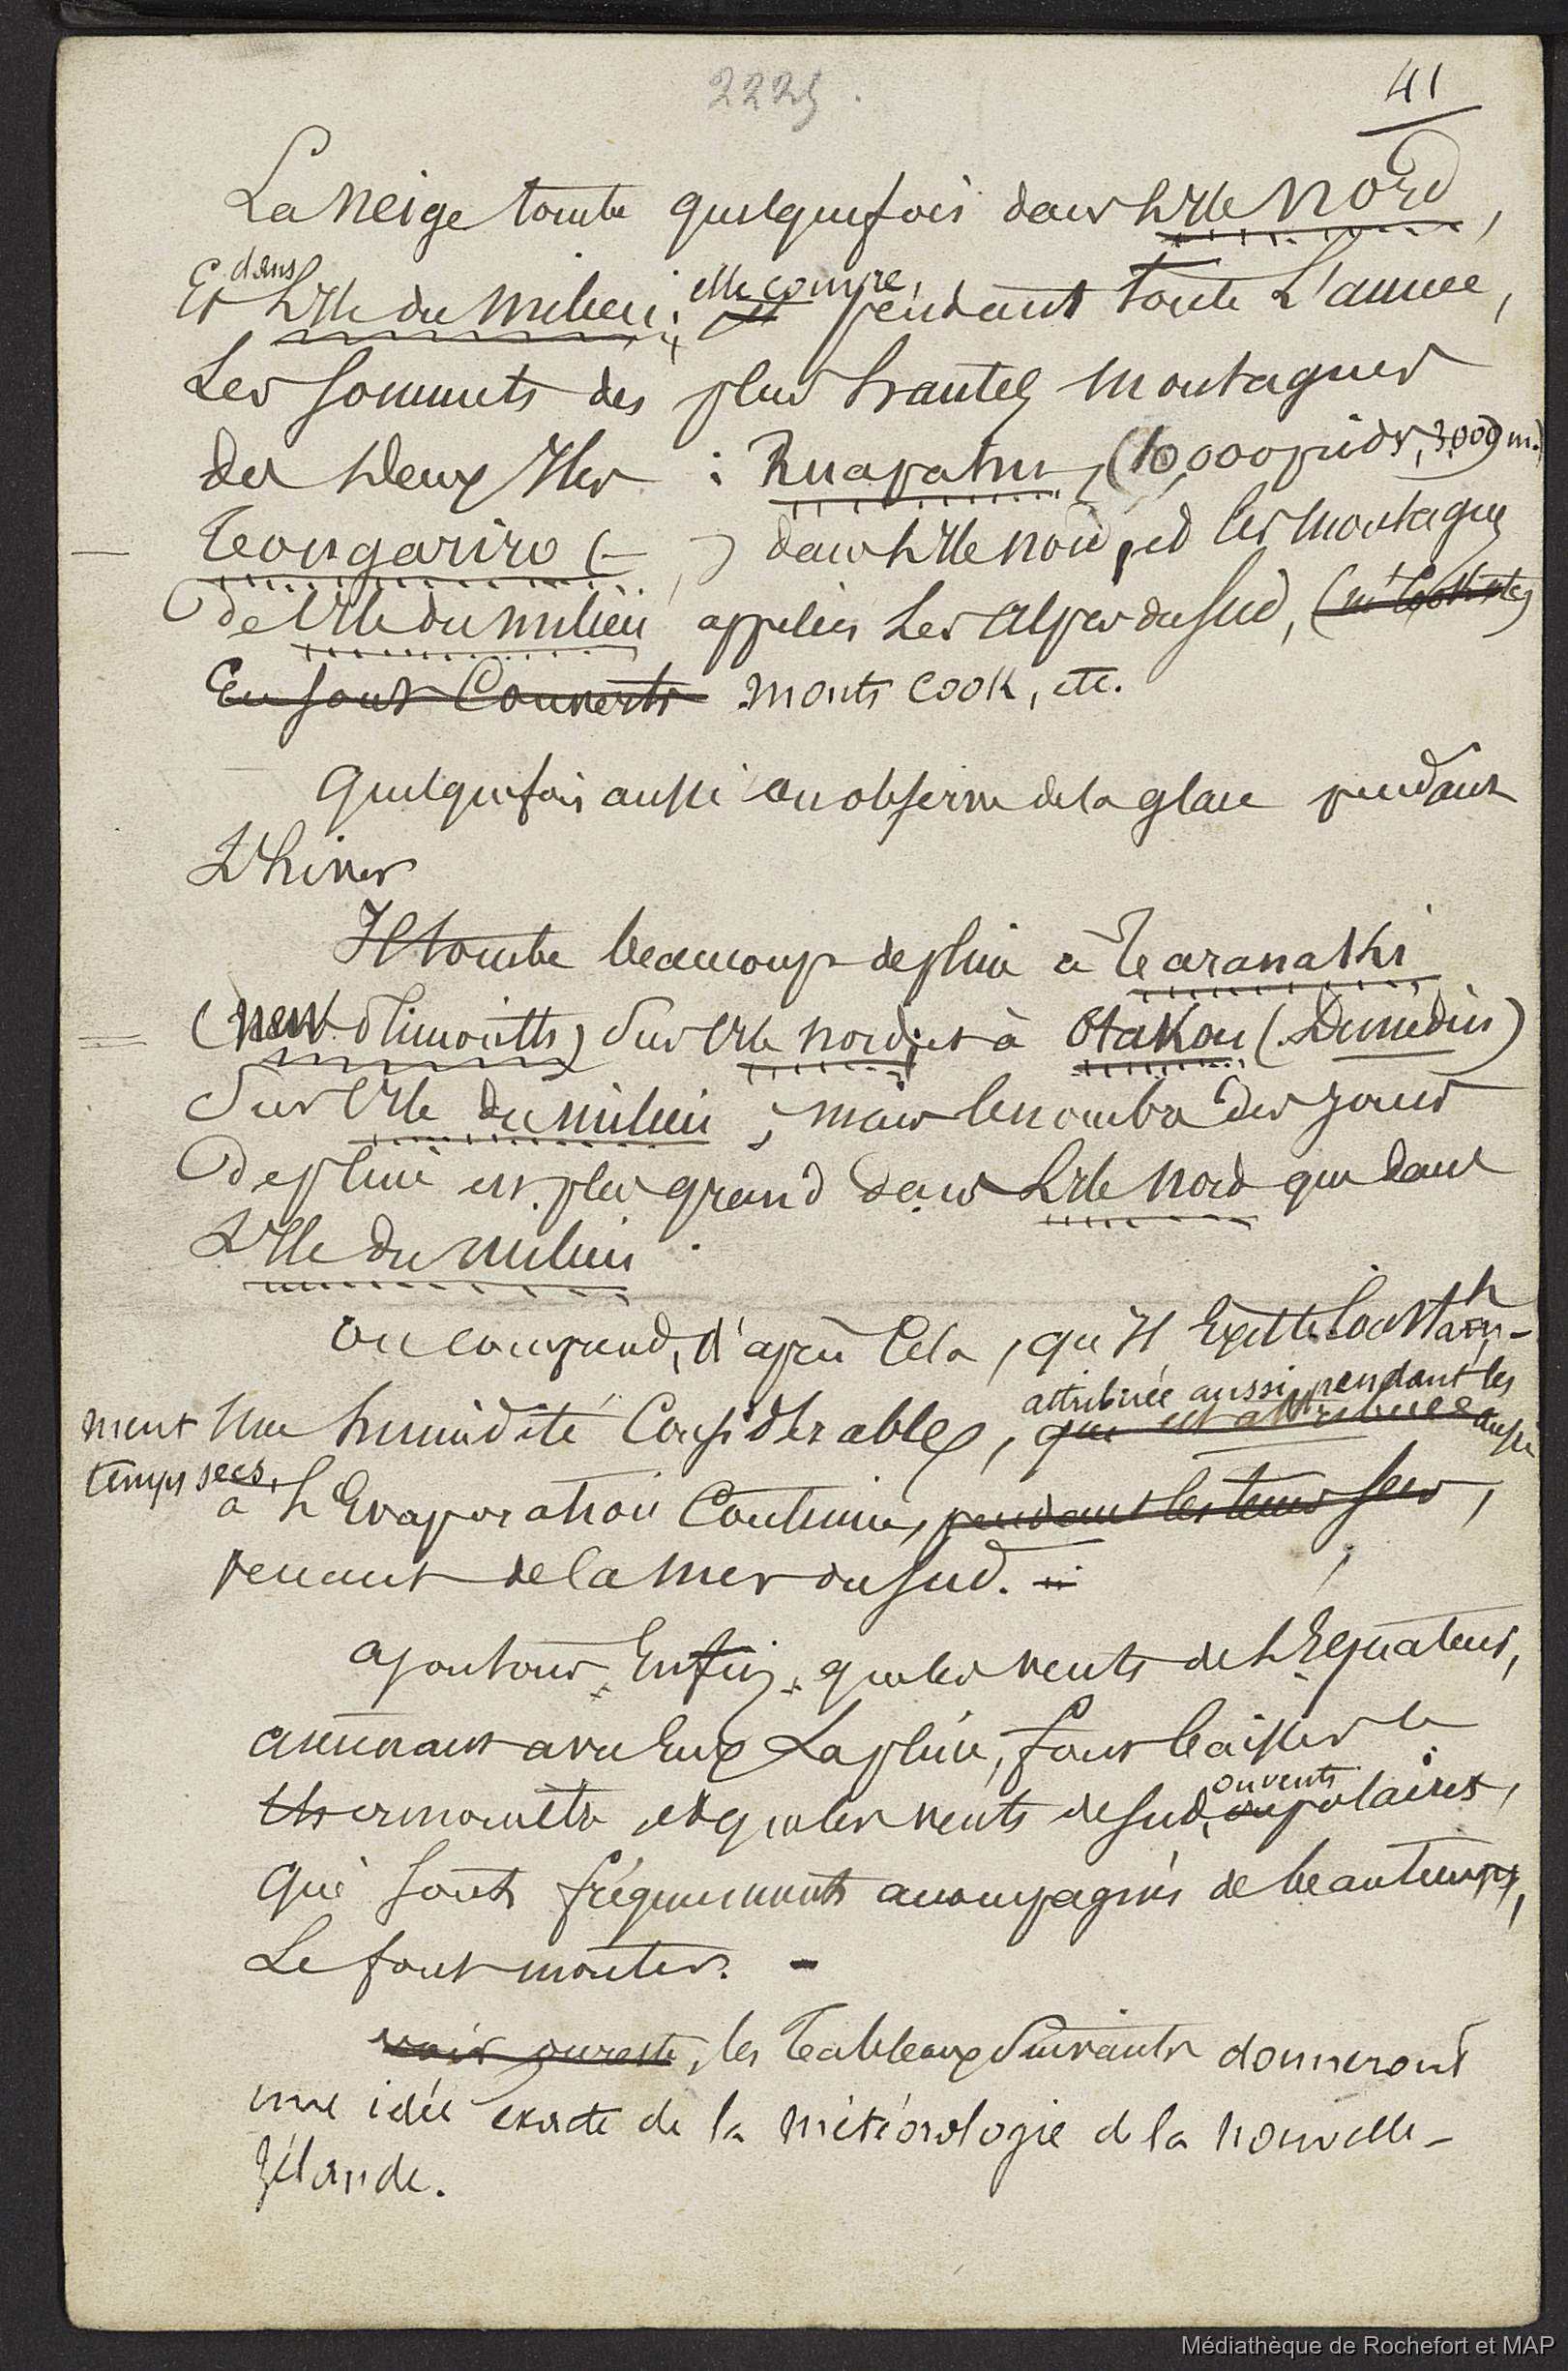 2225.
41
La neige tombe quelquefois dans L'Ile Nord,
Et dans L'Ile du Milieu; elle couvre, pendant toute L'année,
Les sommets des plus hautes montagnes
des deux Iles : Ruapahu, (10,000 pieds, 3,000 m.)
Tongariro (— ) dans L'Ile nord, et les montagnes
de l'Ile du milieu appelées Les Alpes du Sud, (
En sont Couverts monts Cook, etc.
Quelquefois aussi on observe de la glace pendant
L'hiver
Il tombe beaucoup de pluie à Taranakki
(New-Plimouth) Sur l'Ile nord; et à Otakou (Dunédin)
Sur l'Ile du milieu, mais le nombre des jours
de pluie est plus grand dans L'Ile Nord que dans
L'Ile du milieu.
On comprend, d'après Cela, qu'Il Existe Constam-
ment Une humidité Considérable, attribuée aussi, pendant les
que est attribuée aussi
temps secs,
à L'Evaporation Continue, pendant les tems secs,
venant de la mer du Sud.
ajoutons, Enfin, que les vents de L'Equateur,
amenant avec Eux La pluie, font baisser le
thermomètre et que les vents de Sud, ou vents polaires,
qui sont fréquemment accompagnés de beau temps,
Le font monter. -
les Tableaux Suivants donneront
une idée exacte de la météorologie de la nouvelle-
Zélande.
Médiathèque de Rochefort et MAP